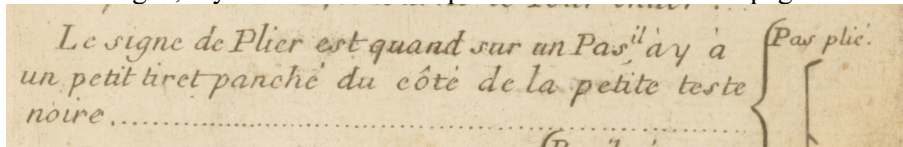 Le signe de Plier est quand sur un Pas il ày à
un petit tiret panché du côté de la petite teste
noire
Pas plié.